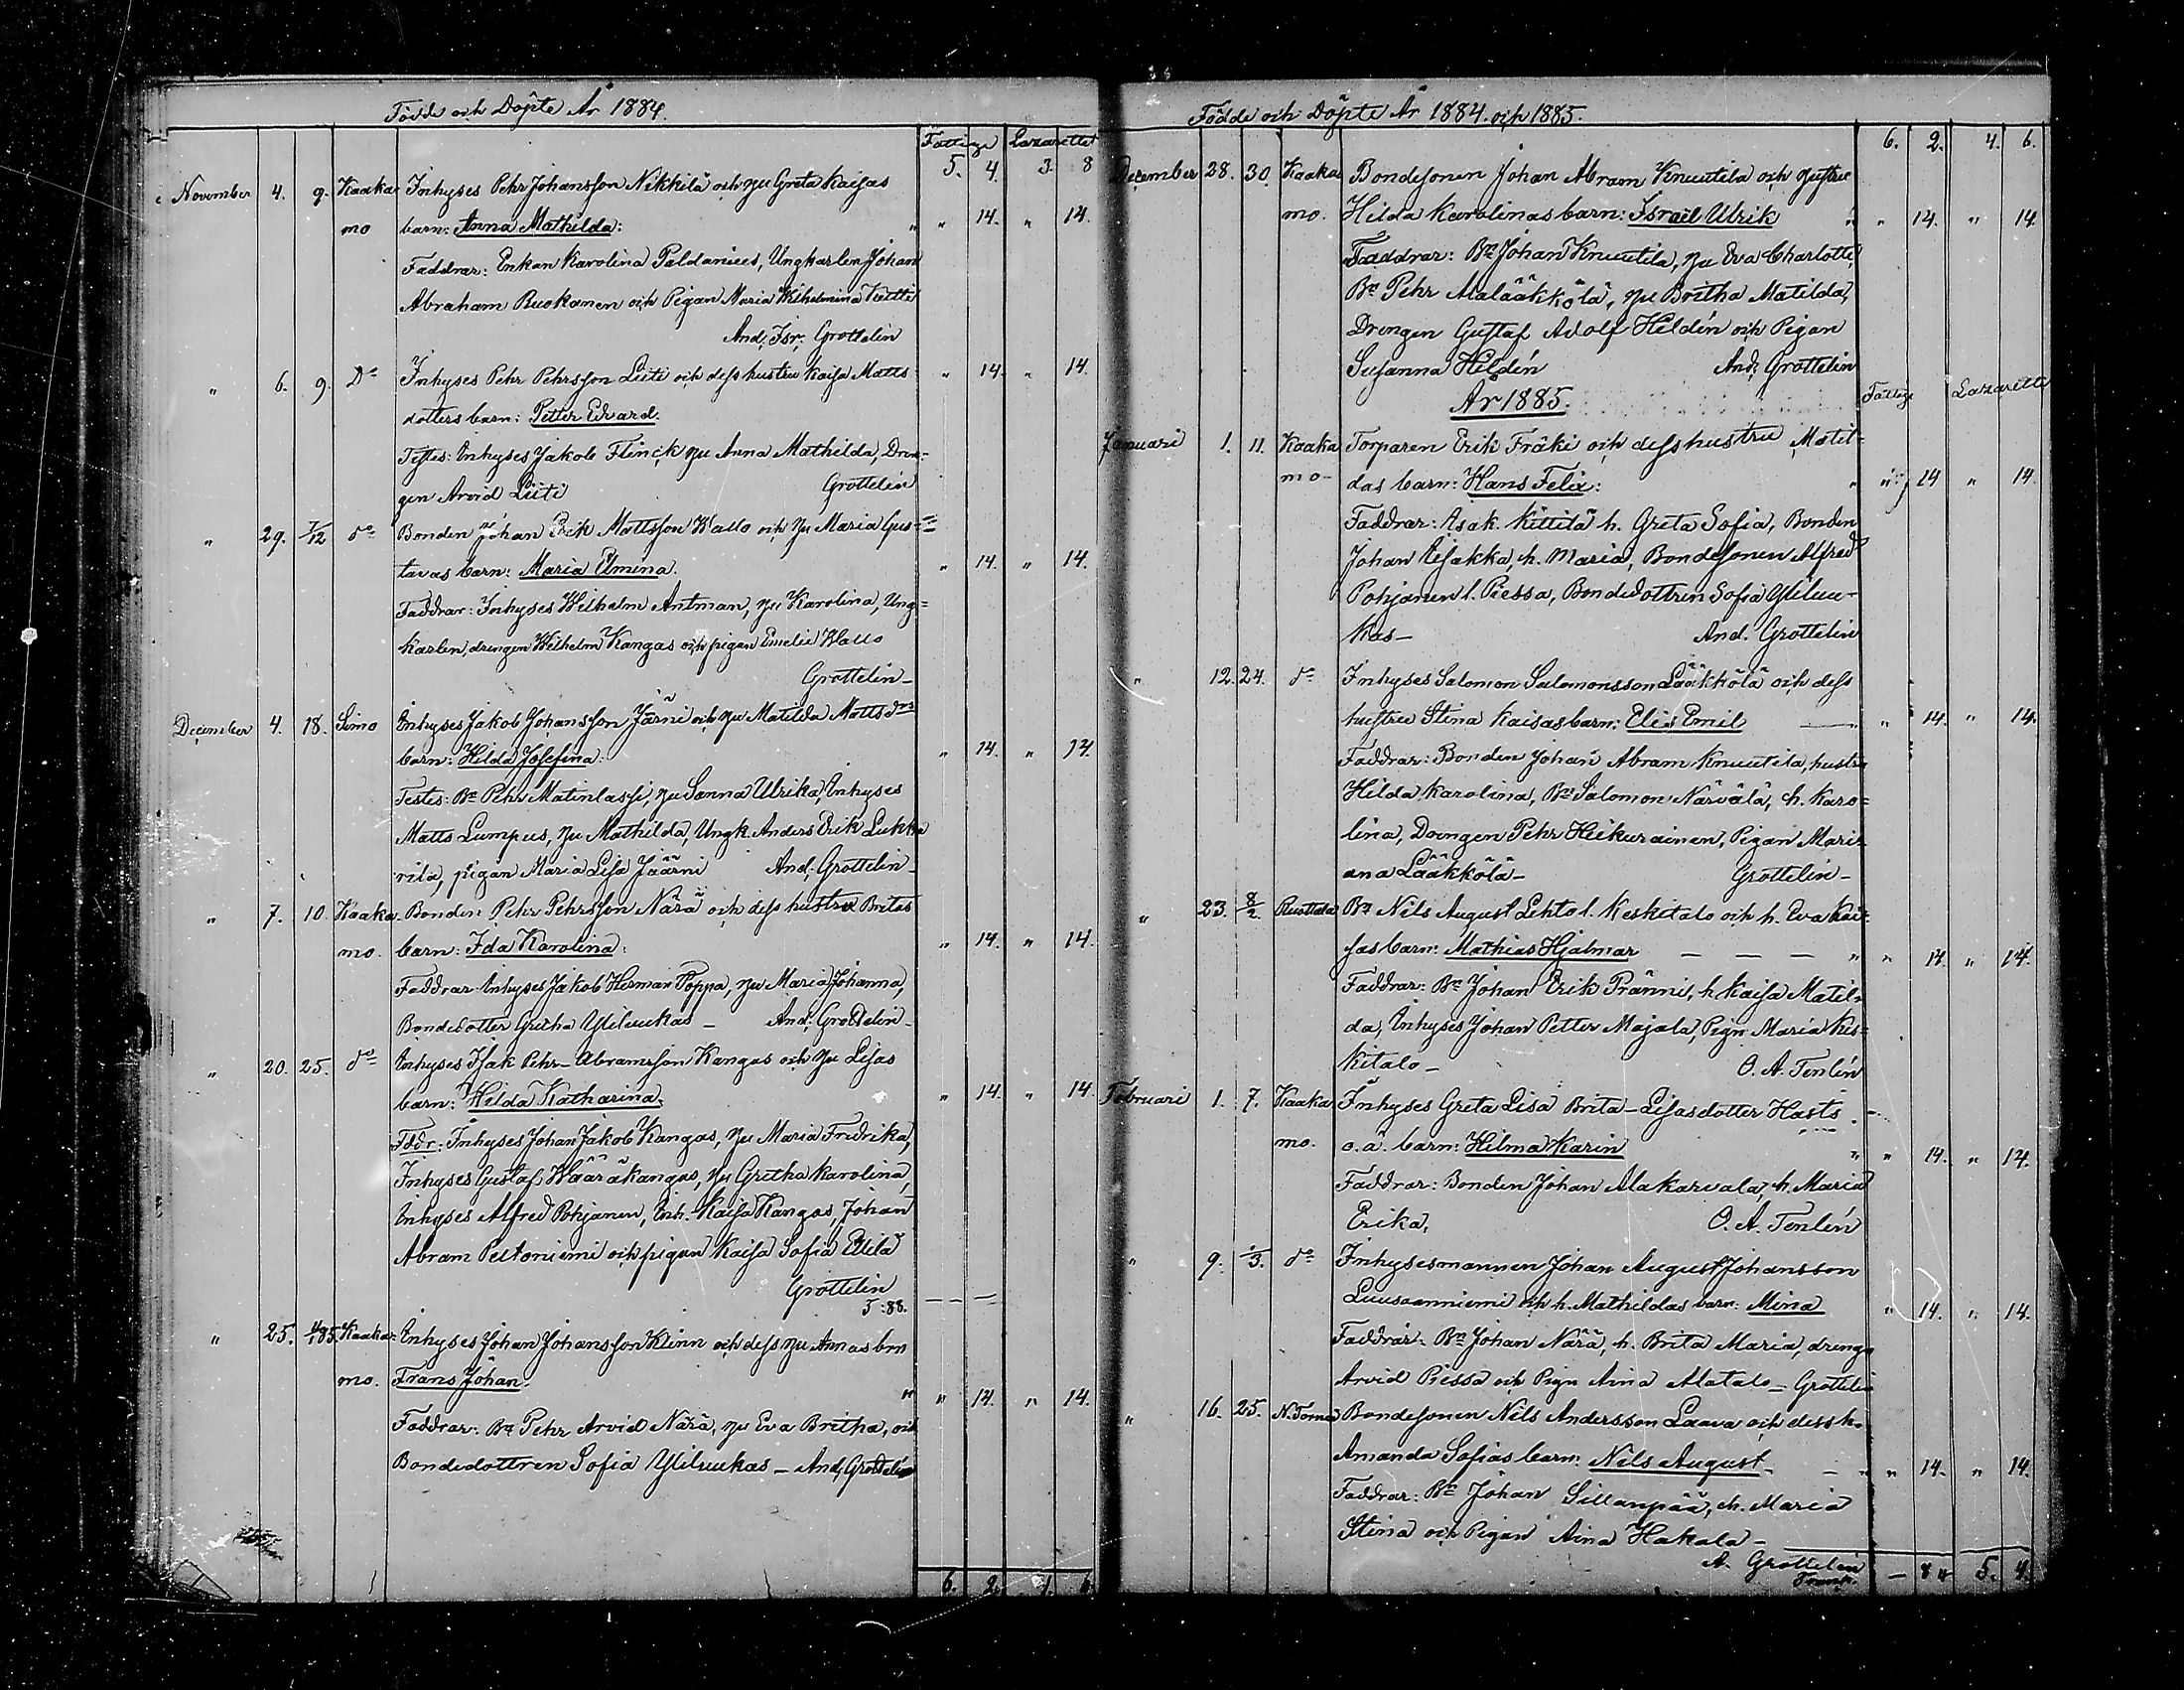 Födde och Döpte År 1884.
Fattige Lazarettet
5. 4. 3. 8
November 4. 9. Kaaka Inhyses Pehr Johansson Nikkilä och Hu Greta Kaisas
mo barn: Anna Mathilda: " " 14. " 14.
Faddrar: Enkan Karolina Paldanius, Ungkarlen Johan
Abraham Ruokanen och Pigan Maria Wilhelmina
And. Isr. Grottelin
" 6. 9. Do Inhyses Pehr Pehrsson Liiti och dess hustru Kaisa Matts " 14. " 14.
dotters barn: Petter Edvard.
Testes: Inhyses Jakob Flinck Hu Anna Mathilda, Dren-
gen Arvid Liiti Grottelin
" 29. 7/12 do Bonden Johan Erik Mattsson Wallo och Hu Maria Gus=
tavas barn: Maria Elmina. " 14. " 14.
Faddrar: Inhyses Wilhelm Antman, Hu Karolina, Ung=
karlen, drengen Wilhelm Kangas och pigan Emelie Wallo
Grottelin-
December 4. 18. Simo Inhyses Jakob Johansson Järni och Hu Matilda Mattsdrs
barn: Hilda Josefina. " 14. " 14.
Testes: Bn Pehr Matinlassi, Hu Sanna Ulrika, Inhyses
Matts Lumpus, Hu Mathilda, Ungk. Anders Erik Lukka
rila, pigan Maria Lisa Jäärni And. Grottelin-
" 7. 10. Kaaka Bonden Pehr Pehrsson Närä och dess hustru Britas
mo. barn: Ida Karolina: " 14. " 14.
Faddrar Inhyses Jakob Herman Poppa, Hu Maria Johanna,
Bondedotter Gretha Yliluukas - And. Grottelin-
" 20. 25. do Inhyses Isak Pehr-Abramsson Kangas och Hu Lisas
barn: Hilda Katharina. " 14. " 14.
Fddr: Inhyses Johan Jakob Kangas, Hu Maria Fredrika,
Inhyses Gustaf Wääräkangas, Hu Gretha Karolina,
Inhyses Alfred Pohjanen, Inh. Kaisa Kangas, Johan
Abram Peltoniemi och pigan Kaisa Sofia
Grottelin
5:88.
" 25. 1/185. Kaaka: Inhyses Johan Johansson Klinn och dess Hu Annas brn
mo. Frans Johan. " " 14. " 14.
Faddrar: Bn Pehr Arvid Närä, Hu Eva Britha, och
Bondedottren Sofia Yliluukas - And. Grottelin
6. 2. 4. 6.
Födde och Döpte År 1884. och 1885.
6. 2. 4. 6.
December 28. 30. Kaaka Bondesonen Johan Abram Knuutila och hustru
mo. Hilda Karolinas barn: Israel Ulrik " " 14. " 14.
Faddrar: Bn Johan Knuutila, Hu Eva Charlotte,
Bn Pehr Alalääkkölä, Hu Britha Matilda,
Drengen Gustaf Adolf Heldén och Pigan
Susanna Heldén And. Grottelin
År 1885. Fattige Lazarette
Januari 1. 11. Kaaka Torparen Erik Fräki och dess hustru Matil=
mo- das barn: Hans Felix: " " 14 " 14.
Faddrar: Isak Kittilä h. Greta Sofia, Bonden
Johan Eisakka, h. Maria, Bondesonen Alfred
Pohjanen l. Piessa, Bondedottren Sofia Yliluu-
kas- And. Grottelin
" 12. 24. do Inhyses Salomon Salomonsson Lääkkölä och dess
hustru Stina Kaisas barn: Elis Emil " " 14. " 14.
Faddrar: Bonden Johan Abram Knuutila, hustru
Hilda Karolina, Bn Salomon Närvälä, h. Karo=
lina, Drengen Pehr Heikurainen, Pigan Mari=
ana Lääkkölä- Grottelin-
" 23. 8/2. Ruottala Bn Nils August Lehto l. Keskitalo och h. Eva Kai-
sas barn: Mathias Hjalmar - - - " " 14. " 14.
Faddrar: Bn Johan Erik Pränni, h Kaisa Matil=
da, Inhyses Johan Petter Majala, Pign Maria Kes=
kitalo- O. A. Tenlén
Februari 1. 7. Kaaka Inhyses Greta Lisa Brita-Lisasdotter Hasts -
mo. o.ä. barn: Hilma Karin " " 14. " 14.
Faddrar: Bonden Johan Alakarvala, h. Maria
Erika, O. A. Tenlén
" 9. 1/3. do Inhysesmannen Johan August Johansson
Luusaanniemi och h. Mathildas barn: Mina " 14. " 14.
Faddrar: Bn Johan Närä, h. Brita Maria, drengn
Arvid Piessa och Pign Aina Alatalo - Grottelin
" 16. 25. N. Torneå Bondesonen Nils Andersson Laava och dess h.
Amanda Sofias barn: Nils August - - " " 14. " 14.
Faddrar: Bn Johan Sillanpää, h. Maria
Stina och Pigan Aina Hakala-
A. Grottelin
Transp. - 84 5. 4.